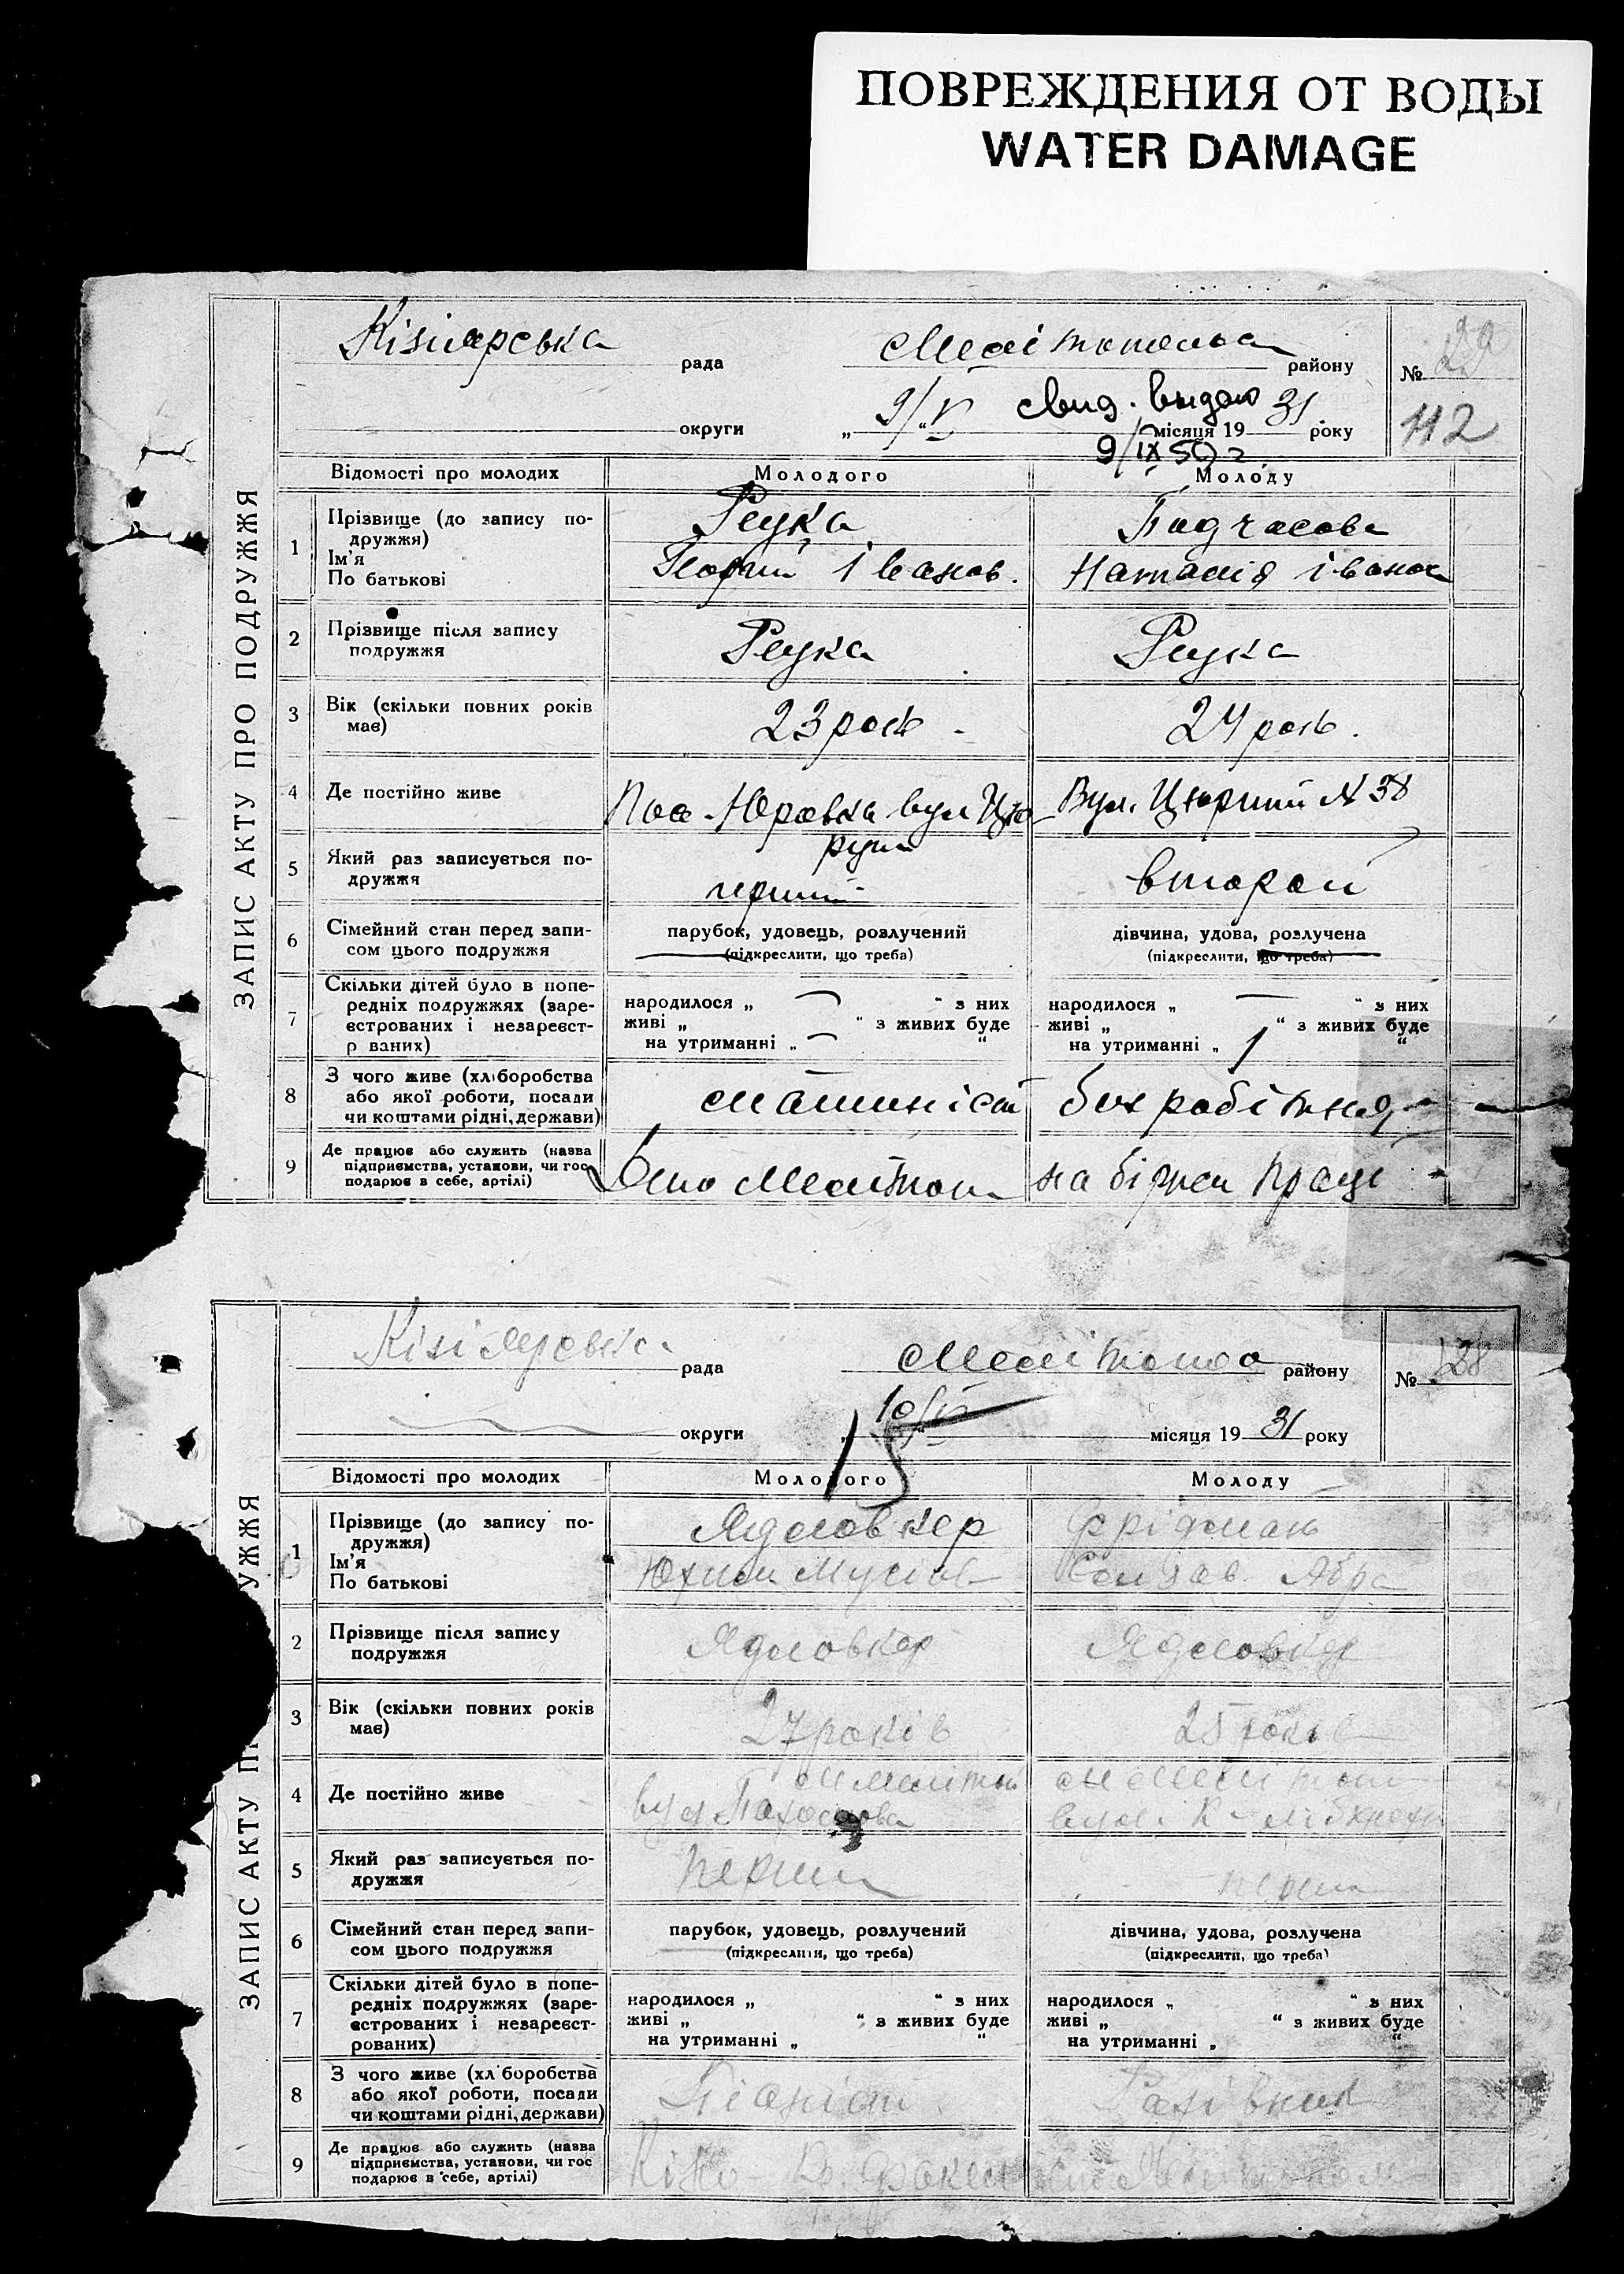 ПОВРЕЖДЕНИЯ ОТ ВОДЫ
WATER DAMAGE
ЗАПИС АКТУ ПРО ПОДРУЖЖЯ
Кізіярська рада району №
112
округи „ 9/V “ місяця 19 31 року
Свид. выдано
9/IX 50 г.
Відомості про молодих Молодого Молоду
1 Прізвище (до запису по-
дружжя)
Ім'я
По батькові
Реука
Георгий Іванов.
Подчасова
Наталія
2 Прізвище після запису
подружжя
Реука Реука
3 Вік (скільки повних років
має)
23 років 24 років.
4 Де постійно живе
Пос. Юровка вул Цю-
рупи
Вул. Цюрупи № 38
5 Який раз записується по-
дружжя
перший второй
6 Сімейний стан перед запи-
сом цього подружжя
парубок, удовець, розлучений
(підкреслити, що треба)
дівчина, удова, розлучена
(підкреслити, що треба)
7 Скільки дітей було в попе-
редніх подружжях (заре-
єстрованих і незареєст-
р ваних)
народилося „ “ з них
живі „ “ з живих буде
на утриманні „ “
народилося „ “ з них
живі „ “ з живих буде
на утриманні „ 1 “
8 З чого живе (хліборобства
або якої роботи, посади
чи коштами рідні, держави)
машиніст безробітня
9 Де працює або служить (назва
підприємства, установи, чи гос
подарює в себе, артілі)
Депо Мелітоп. на біржи праці
ЗАПИС АКТУ ПР УЖЖЯ
рада району № 28
округи „ “ місяця 19 31 року
15
Відомості про молодих Молодого Молоду
1 Прізвище (до запису по-
дружжя)
Ім'я
По батькові
Ядловкер
Юхим Мусій
Фрідман
2 Прізвище після запису
подружжя
Ядловкер Ядловкер
3 Вік (скільки повних років
має)
27 років 25 років
4 Де постійно живе
вул.
вул. К-Лібкнехт
5 Який раз записується по-
дружжя
перший перши
6 Сімейний стан перед запи-
сом цього подружжя
парубок, удовець, розлучений
(підкреслити, що треба)
дівчина, удова, розлучена
(підкреслити, що треба)
7 Скільки дітей було в попе-
редніх подружжях (заре-
єстрованих і незареєст-
рованих)
народилося „ “ з них
живі „ “ з живих буде
на утриманні „ “
народилося „ “ з них
живі „ “ з живих буде
на утриманні „ “
8 З чого живе (хл боробства
або якої роботи, посади
чи коштами рідні, держави)
Піаніст
9 Де працює або служить (назва
підприємства, установи, чи гос
подарює в себе, артілі)
Кіно